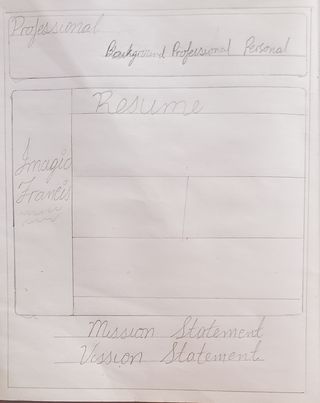 Professional
Background Professional Personal
Resume
Imagic
Francis
Mission Statement
Vission Statement